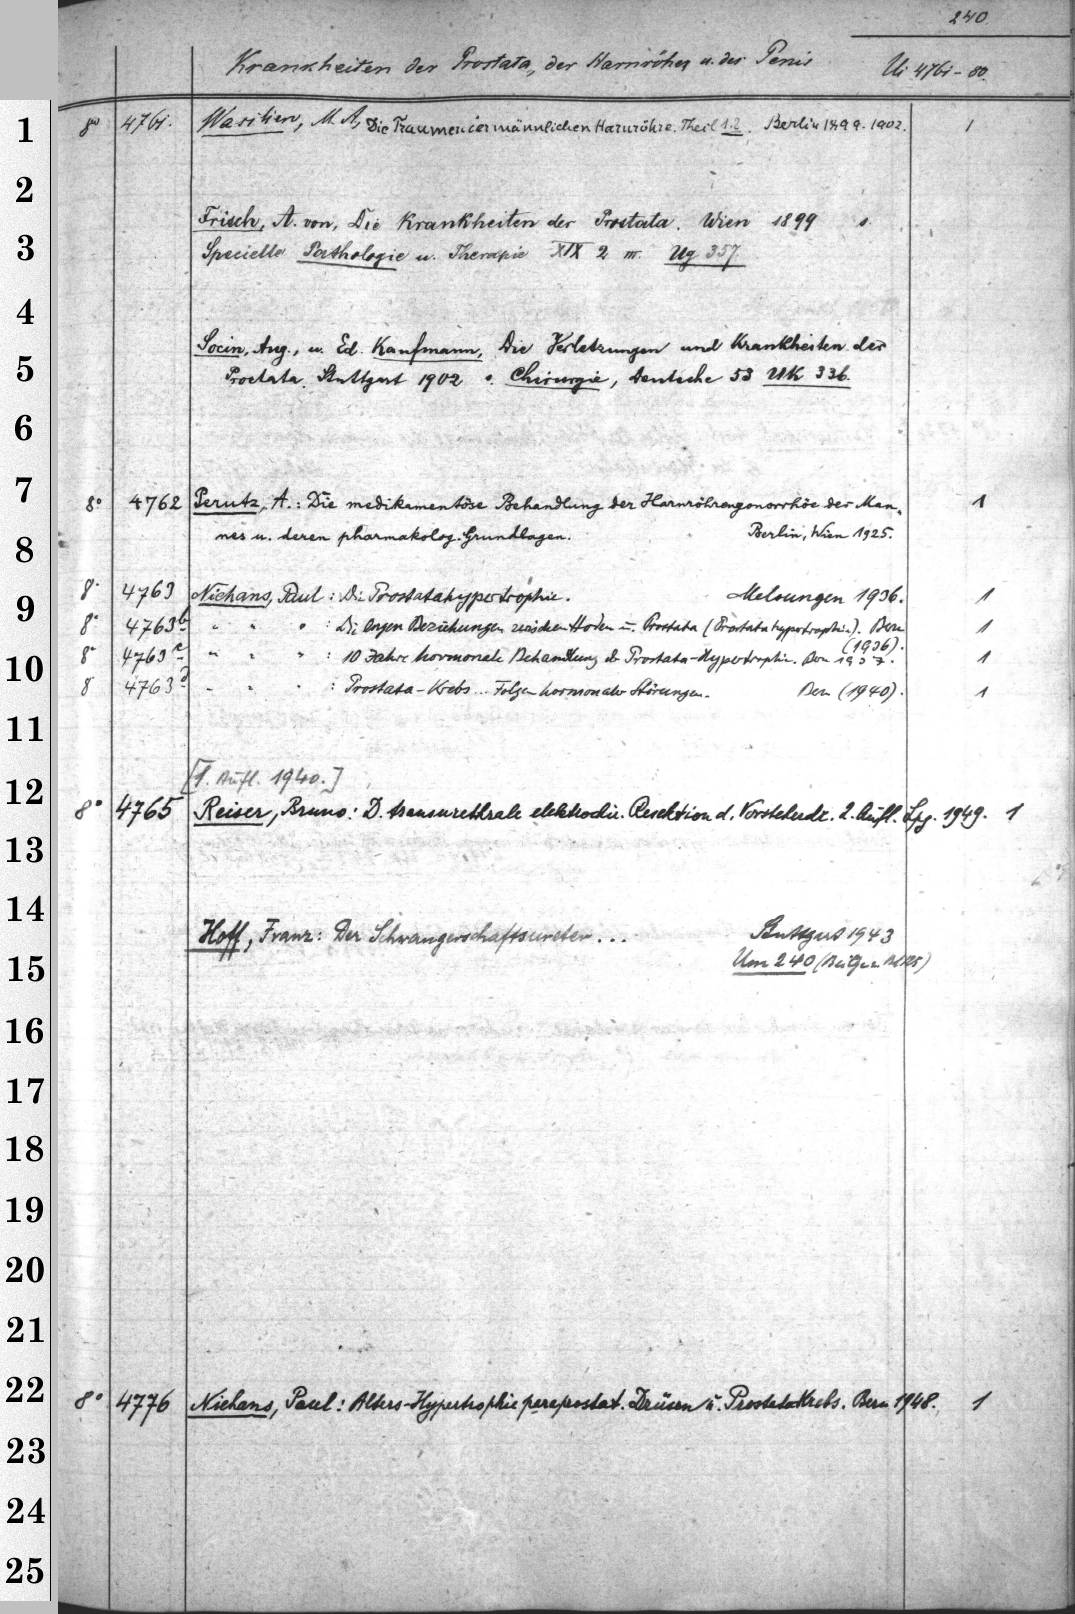 240
Krankheiten der Prostata, der Harnröhre u. des Penis Ui 4761-80.
1 8° 4761. Wasiliew, M. A., Die Traumen der männlichen Harnröhre. Theil 1.2. Berlin 1899-1902. 1
2
Frisch, A. von, Die Krankheiten der Prostata. Wien 1899 s.
3 Specielle Pathologie u. Therapie XIX 2 III. Ug 357.
4
Socin, Aug., u. Ed. Kaufmann, Die Verletzungen und Krankheiten der
5 Prostata. Stuttgart 1902 s. Chirurgie, Deutsche 53 Uk 336.
6
7 8° 4762 Perutz, A.: Die medikamentöse Behandlung der Harnröhrengonorrhöe des Man-
8 nes u. deren pharmakolog. Grundlagen. Berlin, Wien 1925. 1
9 8° 4763 Niehans, Paul: Die Prostatahypertrophie. Melsungen 1936. 1
8° 4763b " " " : Die engen Beziehungen zwischen Hoden u. Prostata (Prostatahypertrophie). Bern (1936). 1
10 8° 4763c " " " : 10 Jahre hormonale Behandlung d. Prostata-Hypertrophie. Bern 1937. 1
8° 4763d " " " : Prostata-Krebs... Folgen hormonaler Störungen. Bern (1940). 1
11
[1. Aufl. 1940.]
12 8° 4765 Reiser, Bruno: D. transurethrale elektrochir. Resektion d. Vorsteherdr. 2. Aufl. Lpg. 1949. 1
13
14 Hoff, Franz: Der Schwangerschaftsureter... Stuttgart 1943
15 Um 240
16
17
18
19
20
21
22 8° 4776 Niehans, Paul: Alters-Hypertrophie paraprostat. Drüsen u. Prostatakrebs. Bern 1948. 1
23
24
25